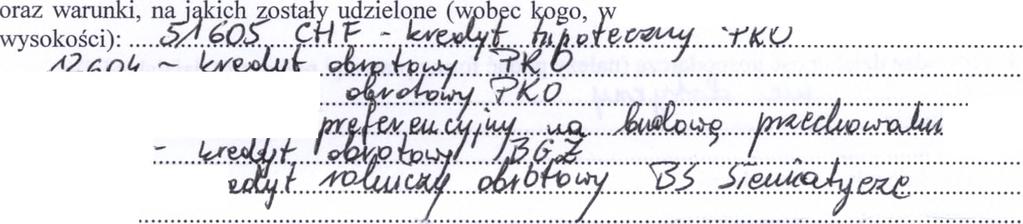 oraz warunki, na jakich zostały udzielone (wobec kogo, w
wysokości): 51605 CHF - kredyt hipoteczny PKO
12604 - kredyt obrotowy PKO
obrotowy PKO
preferencyjny na budowę przechowalni
- kredyt obrotowy BGŻ
edyt rolniczy obrotowy BS Siemiatycze